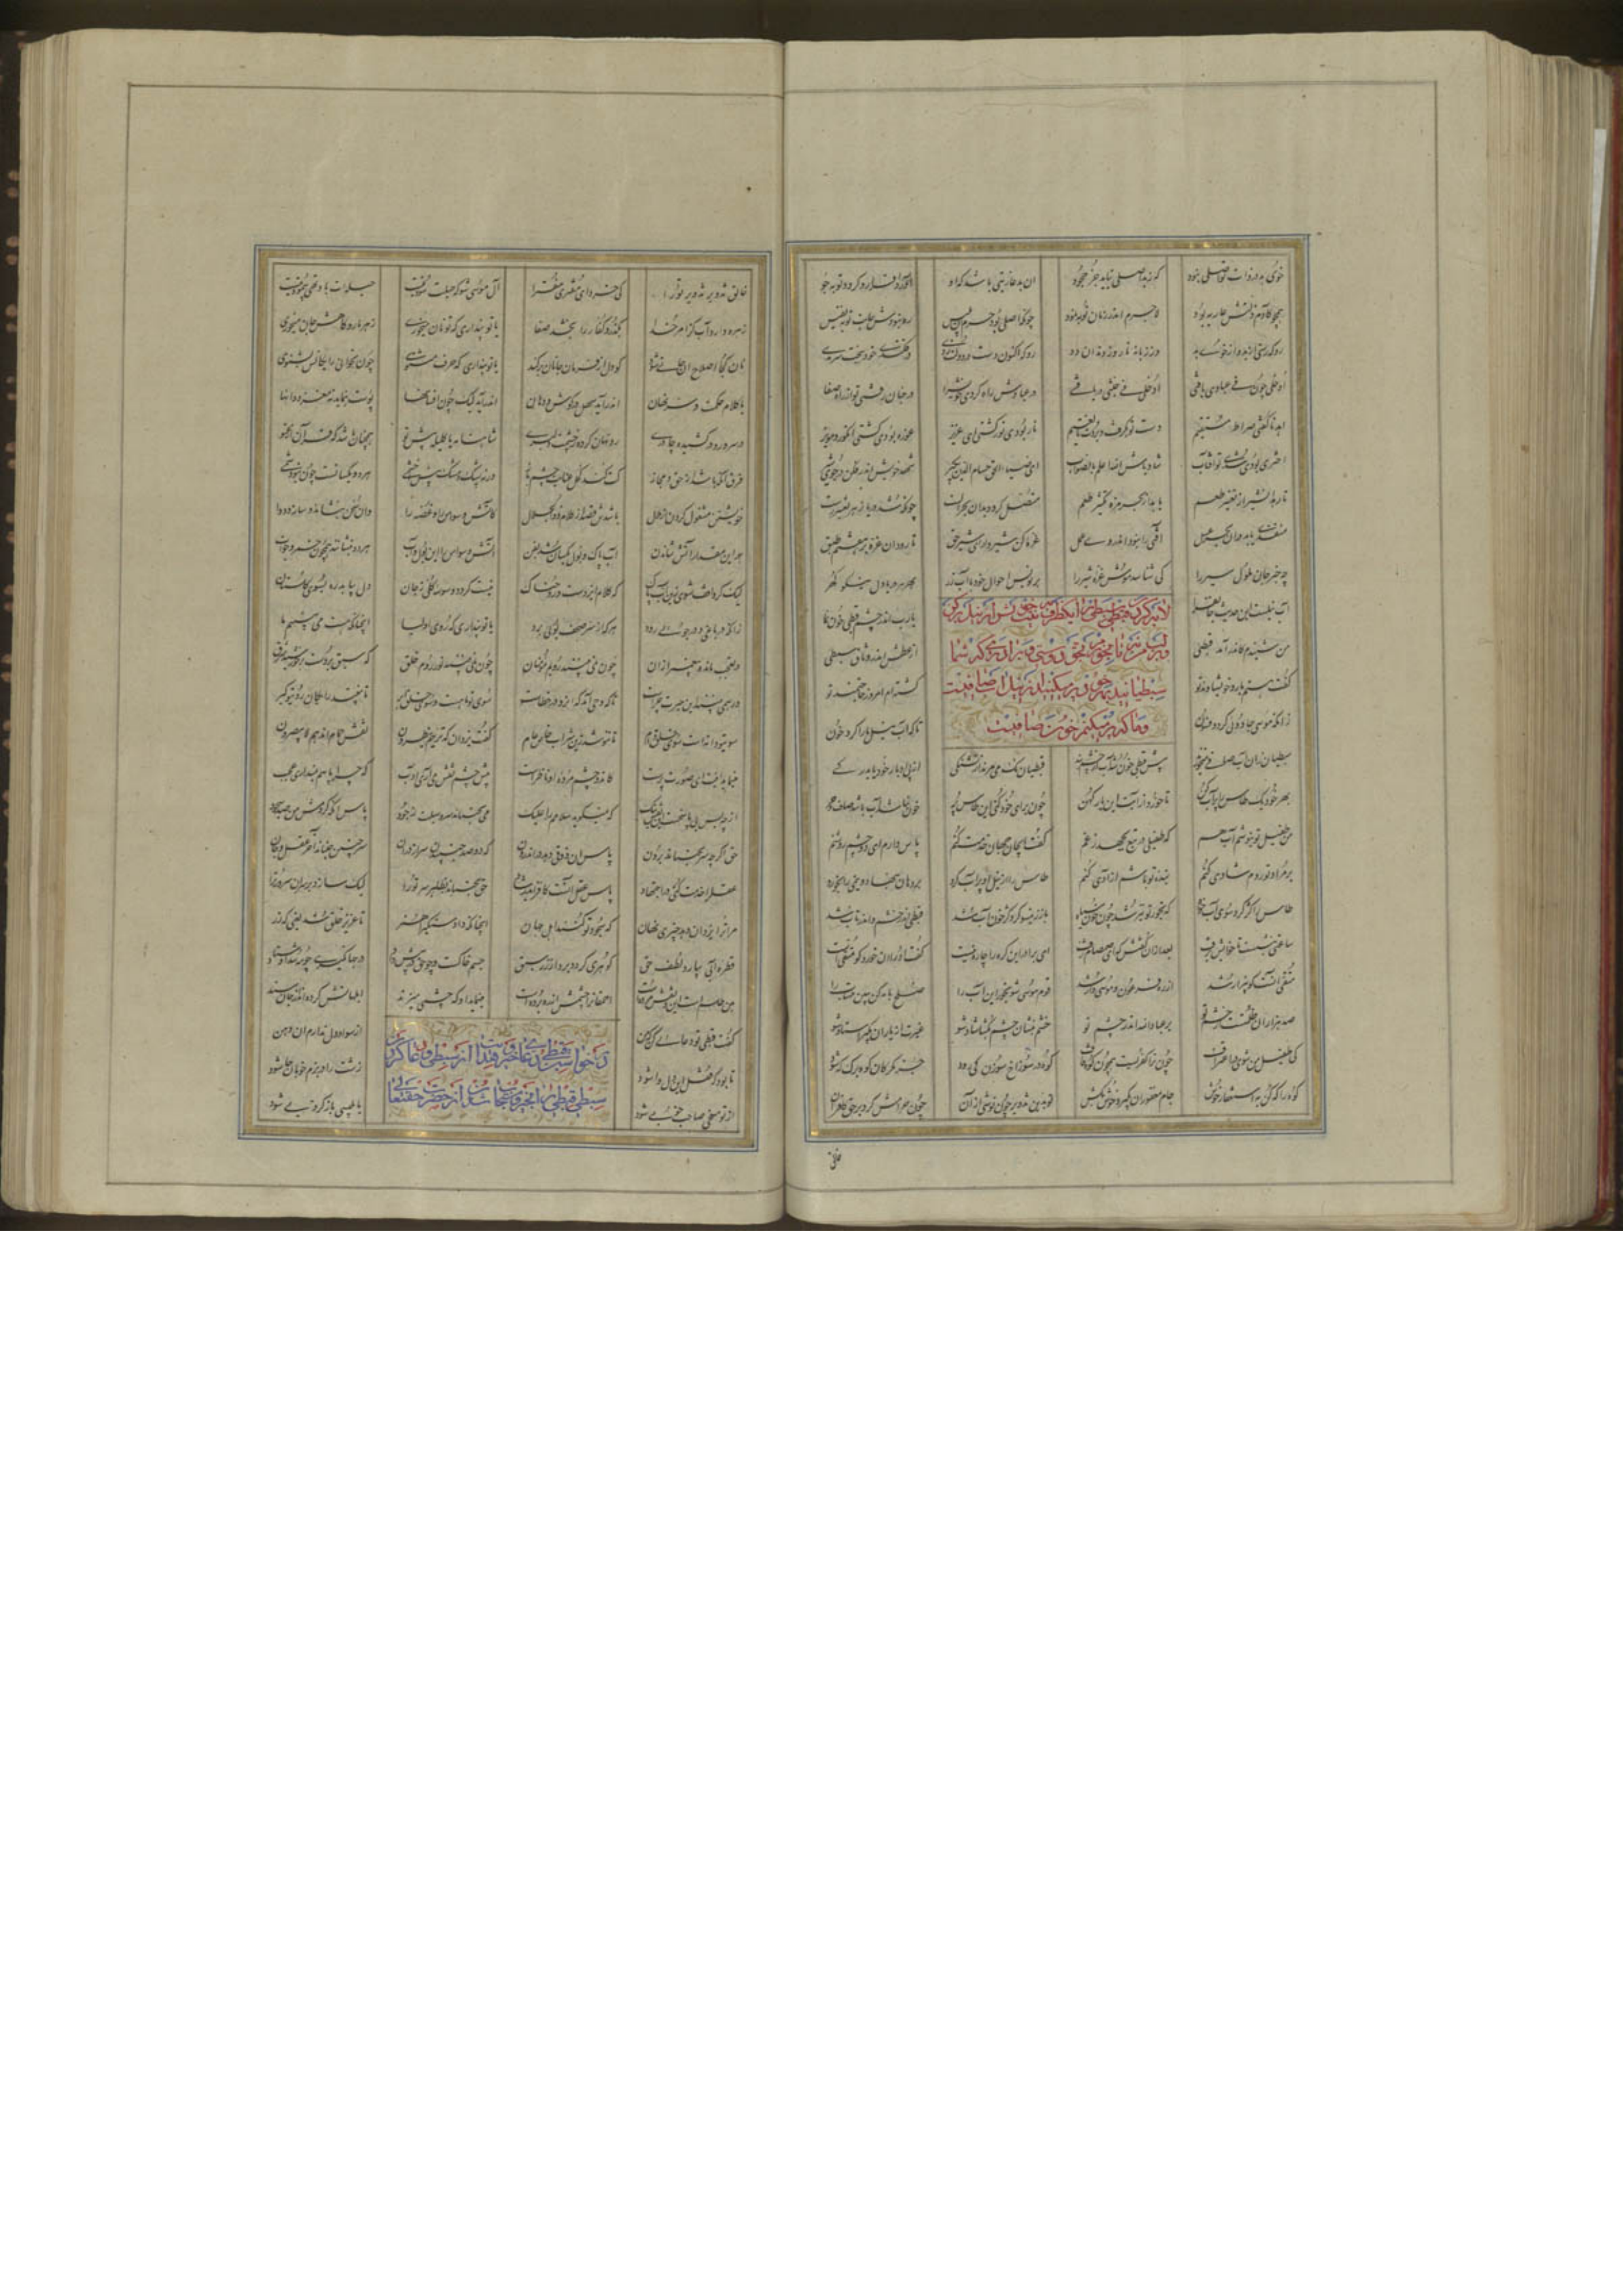 خوی بد در ذات تو اصلی نبود که ز بد اصلی نیاید جز جحود ان بد عاریتی باشد که او
همچو آدم زلتش عاریه بود لاجرم اندر زمان توبه نمود چونکه اصلی بود جرم آن بلیس ره نبودش جانب توبه نفیس
رو که رستی از خود و از خوی بد وز زبانه نار وز دندان دد رو که اکنون دست در دولت زدی در فکندی خود به بخت سرمدی
ادخلی چون فی عبادی یافتی ادخلی فی جنتی در عبادش راه کردی خویش را در جنان رفتی تو از راه صفا
اهدنا گفتی صراط مستقیم دست تو بگرفت و بردت تا نعیم نار بودی نور گشتی ای عزیز غوره بودی گشتی انگور و مویز
اختری بودی شدی تو آفتاب شاد باش الله اعلم بالصواب ای ضیاء الحق حسام الدین بگیر شهد خویش اندر فکن در حوض شیر
تا رهد آن شیر از تغییر طعم یابد از بحر مزه تکثیر طعم متصل گردد بدان بحر الست چونکه شد دریا ز هر تغییر رست
منفذی یابد در آن بحر عسل آفتی را نبود اندر وی عمل غره کن شیروار ای شیر حق تا رود آن غره بر هفتم طبق
چه خبر جان ملول سیر را کی شناسد موش غره شیر را بر نویس احوال خود با آب زر بهر هر دریا دل نیکو گهر
آب نیلست این حدیث جانفزا یا رب اندر چشم قبطی خون نما
لابه کردن قبطی سبطی را که یک ظرف به نیت خویش از نیل پر کن
و بر لب من نه تا بخورم بحق دوستی و برادری که شما
سبطیانید بهر خود پر میکنید از نیل آب صافیست
و ما که پر میکنیم خون صافیست
من شنیدم که درآمد قبطی از عطش اندر وثاق سبطی
گفت هستم یار و خویشاوند تو گشته ام امروز حاجتمند تو
زانکه موسی جادوی کرد و فسون تا که آب نیل ما را کرد خون
سبطیان زان آب صافی میخورند پیش قبطی خون شد آب از چشم بند قبطیان نک می مرند از تشنگی از پی ادبار خود یا بدرکی
بهر خود یک طاس را پر آب کن تا خورد از آبت این یار کهن چون برای خود کنی این طاس پر خون نباشد آب باشد صاف و حر
من طفیل تو بنوشم آب هم که طفیلی در تبع بجهد ز غم گفت ای جان جهان خدمت کنم پاس دارم ای دو چشم روشنم
بر مراد تو روم شادی کنم بنده تو باشم آزادی کنم طاس را از نیل او پر آب کرد بر دهان بنهاد و نیمی را بخورد
طاس را کژ کرد سوی آب خواه که بخور تو نیز شد خون سیاه باز زینسو کرد کژ خون آب شد قبطی اندر خشم و اندر تاب شد
ساعتی بنشست تا خشمش برفت بعد از آن گفتش که ای صمصام زفت ای برادر این گره را چاره چیست گفت این را او خورد کو متقیست
متقی آنست کو بیزار شد از ره فرعون و موسی وار شد قوم موسی شو بخور این آب را صلح با مه کن ببین مهتاب را
صد هزاران ظلمتست از خشم تو بر عباد الله اندر چشم تو خشم بنشان چشم بگشا شاد شو عبرت از یاران بگیر استاد شو
کی طفیل من شوی در اغتراف چون ترا کفریست همچون کوه قاف کوه در سوراخ سوزن کی رود جز مگر کان که برگ که شود
کوه را که کن به استغفار خوش جام مغفوران بگیر و خوش بکش تو بدین تزویر چون نوشی از آن چون حرامش کرد بر حق کافران
خالق تزویر تزویر ترا کی خرد ای مفتری مفترا آل موسی شو که حیلت سود نیست حیلت باد تهی پیمودنیست
زهره دارد آب کز امر خدا گردد او با کافران یا تو پنداری که تو نان میخوری زهر مار و کاهش جان میخوری
نان کجا اصلاح آن جانی شود کو دل از فرمان جانان برکند یا تو پنداری که حرف مثنوی چون بخوانی رایگانش بشنوی
یا کلام حکمت و سر نهان اندر آید سهل در گوش و دهان اندر آید لیک چون افسانها پوست بنماید نه مغز دانها
در سر و رو در کشیده چادری رو نهان کرده ز چشمت دلبری شاهنامه یا کلیله پیش تو همچنان باشد که قرآن از عتو
فرق آنگه باشد از حق و مجاز که کند کحل عنایت چشم باز ورنه پشک و مشک پیش اخشمی هر دو یکسانست چون نبود شمی
خویشتن مشغول کردن از ملال باشدش قصد از کلام ذو الجلال کاتش وسواس را و غصه را زان سخن بنشاند و سازد دوا
بهر این مقدار آتش شاندن آب پاک و بول یکسان شد بفن آتش وسواس را این بول و آب هر دو بنشانند همچون وقت خواب
لیک گر واقف شوی زین آب پاک که کلام ایزدست و روحناک نیست گردد وسوسه کلی ز جان دل بیابد ره بسوی گلستان
زانکه در باغی و در جویی رود هر که از سر صحف بویی برد یا تو پنداری که روی اولیا آنچنانکه هست می بینیم ما
در تعجب مانده پیغمبر از آن چون نمی بینند رویم مومنان چون نمی بینند نور روم خلق که سبق بردست بر خورشید شرق
ور همی بینند این حیرت چراست تا که وحی آمد که آن رو در خفاست سوی تو ماهست و سوی خلق ابر تا نبیند رایگان روی تو گبر
سوی تو دانه است سوی خلق دام تا ننوشد زین شراب خاص عام گفت یزدان که تریهم ینظرون نقش حمامند هم لا یبصرون
مینماید صورت ای صورت پرست کان دو چشم مرده او ناظرست پیش چشم نقش می آری ادب کو چرا پاسم نمی دارد عجب
از چه بس بی پاسخست این نقش نیک که نمیگوید سلامم را علیک می نجنباند سر و سبلت ز جود پاس آنکه کردمش من صد سجود
حق اگر چه سر نجنباند برون پاس آن ذوقی دهد در اندرون که دو صد جنبیدن سر ارزد آن سر چنین جنباند آخر عقل و جان
عقل را خدمت کنی در اجتهاد پاس عقل آنست کافزاید رشاد حق نجنباند بظاهر سر ترا لیک سازد بر سران سرور ترا
مر ترا چیزی دهد یزدان نهان که سجود تو کنند اهل جهان آنچنانکه داد سنگی را هنر تا عزیز خلق شد یعنی که زر
قطره آبی بیابد لطف حق گوهری گردد برد از زر سبق جسم خاکست و چو حق تابیش داد در جهانگیری چو مه شد اوستاد
هین طلسمست این و نقش مرده است احمقان را چشمش از ره برده است مینماید او که چشمی میزند ابلهان سازیده اند او را سند
درخواستن قبطی دعاء خیر و هدایت از سبطی و دعا کردن
سبطی قبطی را بخیر و مستجاب شدن از حضرت حقتعالی
گفت قبطی تو دعایی کن که من از سیاهی دل ندارم آن دهن
تا بود که قفل این دل وا شود زشت را در بزم خوبان جا شود
از تو مسخی صاحب خوبی شود یا بلیسی باز کروبی شود